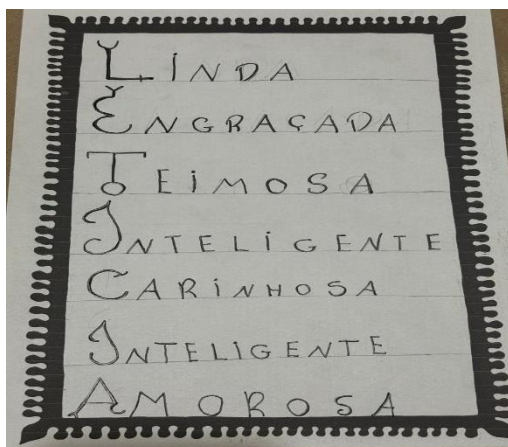 LINDA
ENGRAÇADA
TEIMOSA
INTELIGENTE
CARINHOSA
INTELIGENTE
AMOROSA